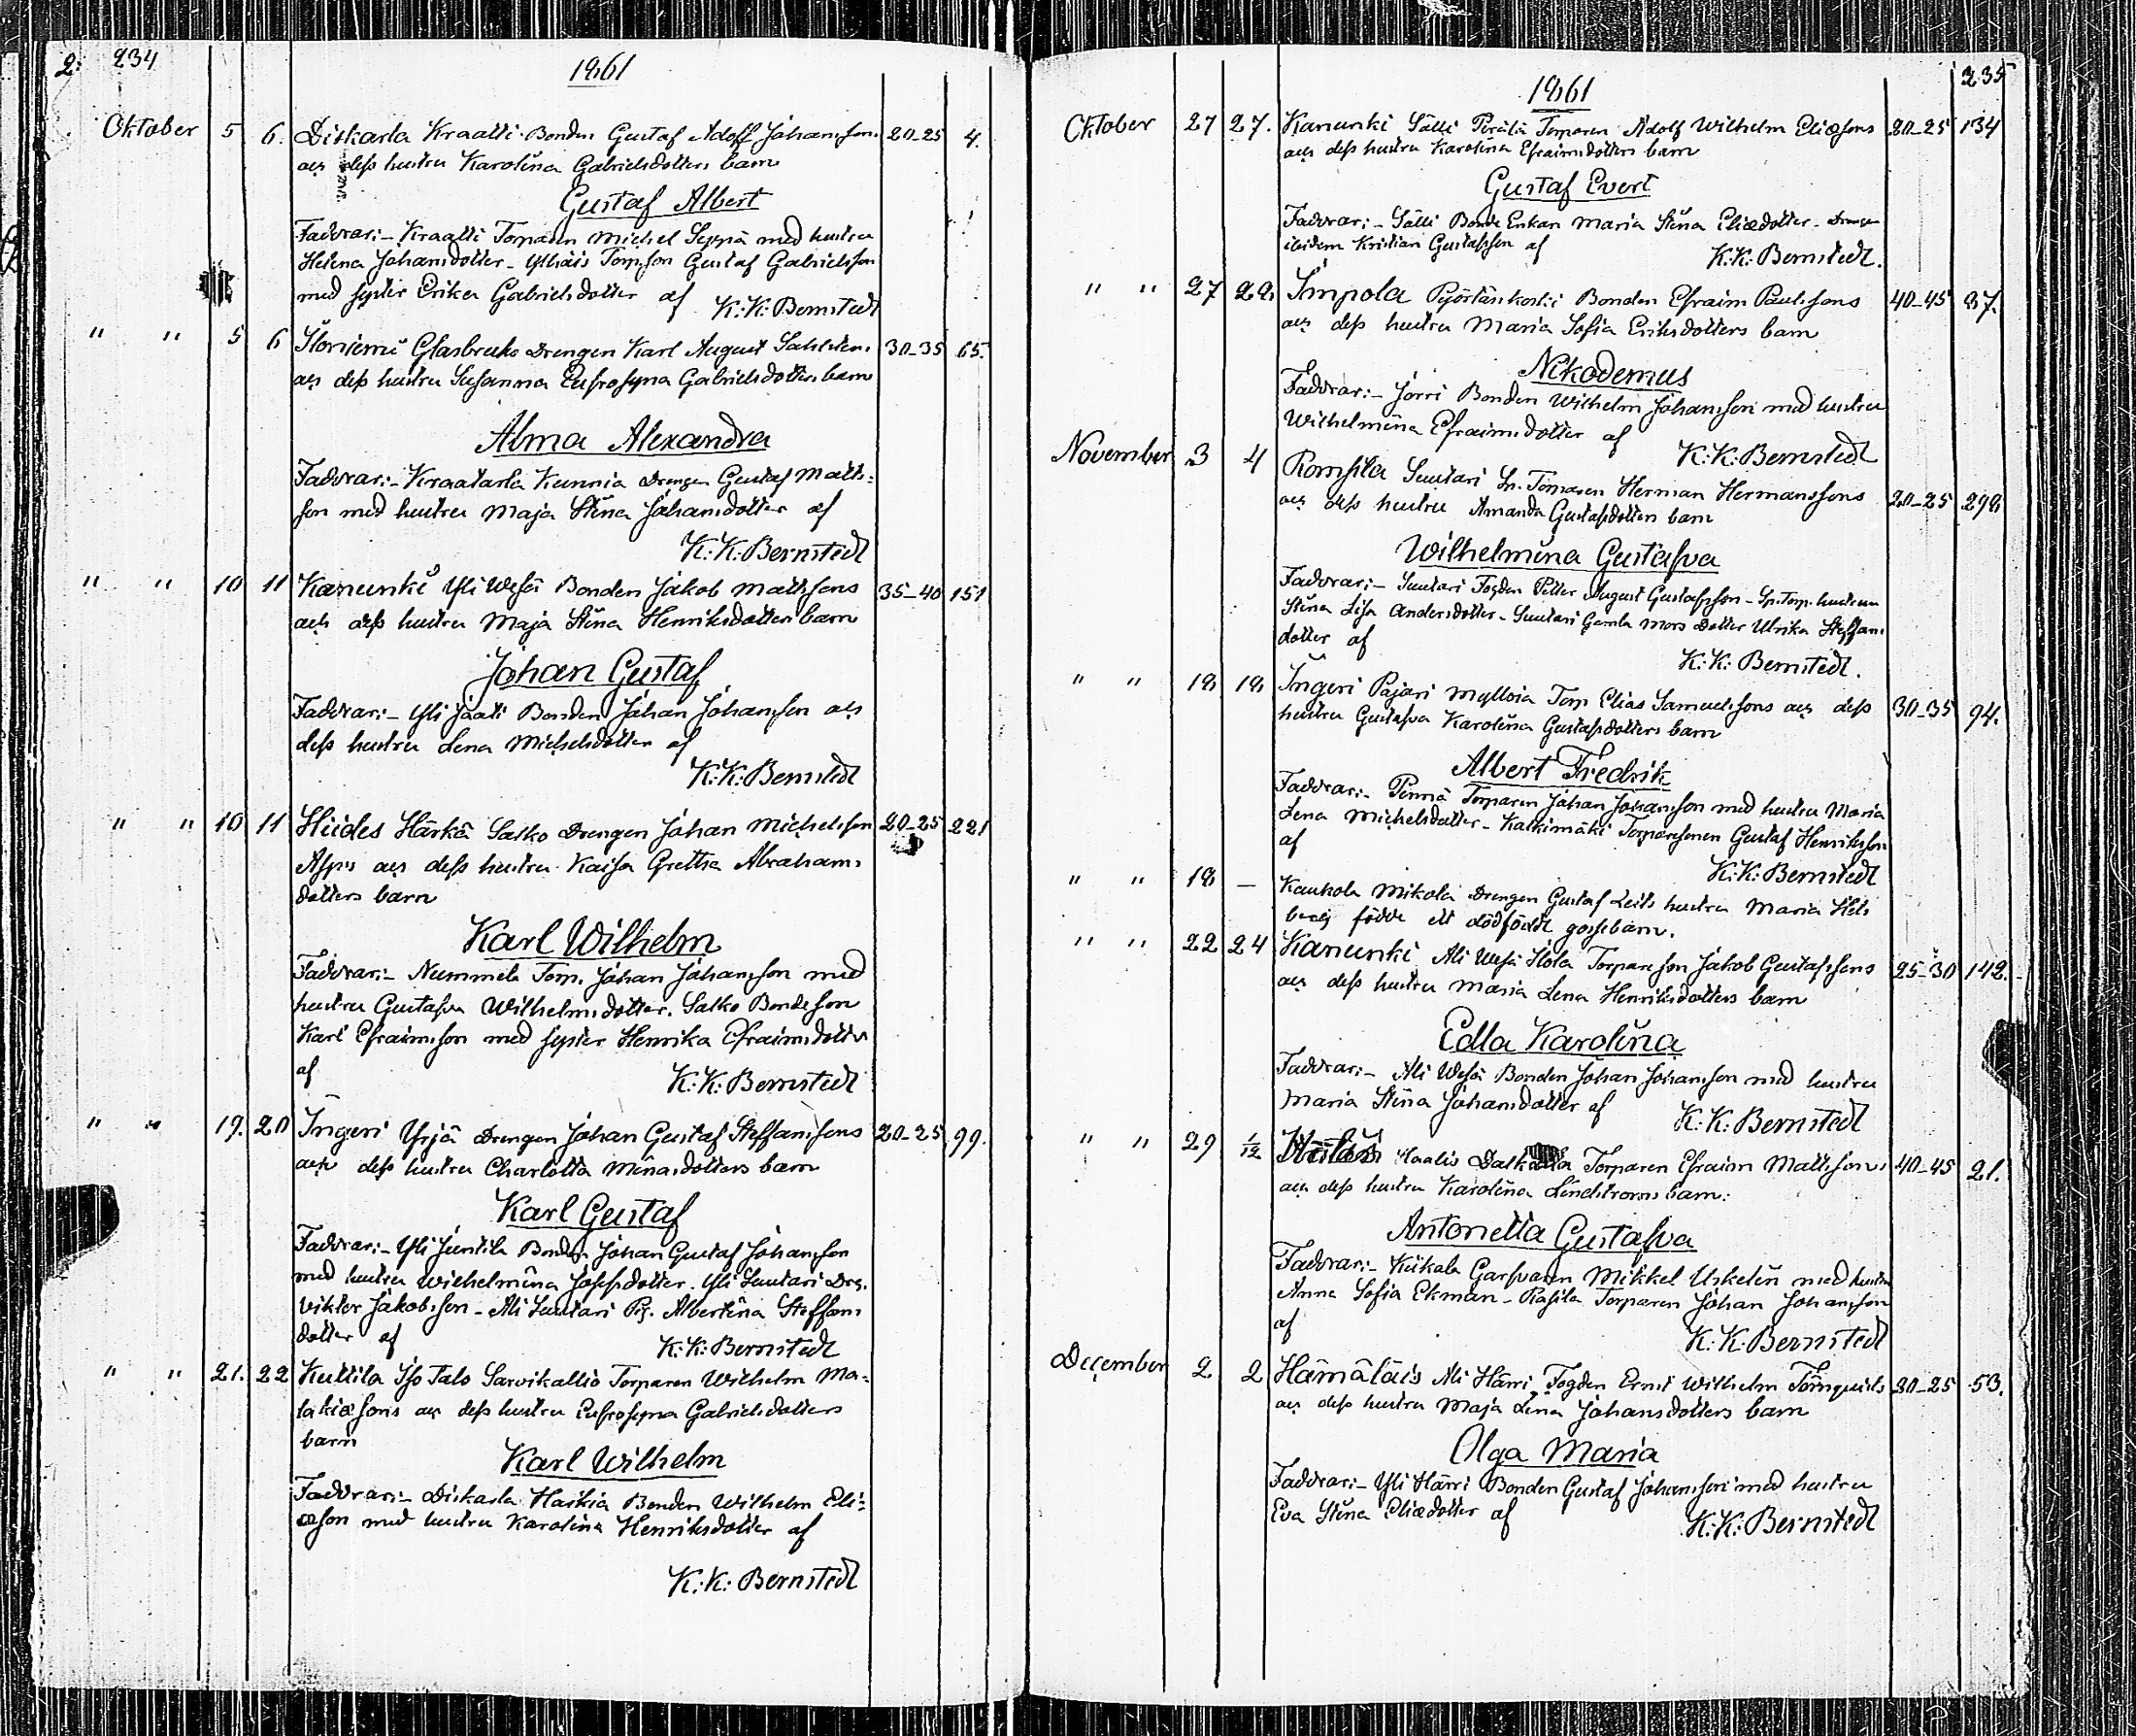 2. 234
1861
Oktober 5 6. Diskarla Kraatti Bonden Gustaf Adolf Johansson 20-25 4.
och dess hustru Karolina Gabrielsdotters barn
Gustaf Albert
Faddrar:- Kraatti Torparen Michel Seppä med hustru
Helena Johansdotter - Torpson Gustaf Gabrielsson
med syster Erika Gabrielsdotter af K:K: Bernstedt
" " 5 6 Glasbruks Drengen Karl August 30-35 65.
och dess hustru Susanna Eufrosyna Gabrielsdotters barn
Alma Alexandra
Faddrar:- Kraatarla Kunnia Drengen Gustaf Matts:
son med hustru Maja Stina Johansdotter af
K:K: Bernstedt
" " 10 11 Kanunki Yli Wesa Bonden Jakob Mattssons 35-40 151
och dess hustru Maja Stina Henriksdotters barn
Johan Gustaf
Faddrar:- Yli Jaati Bonden Johan Johansson och
dess hustru Lena Michelsdotter af
K:K: Bernstedt
" " 10 11 Hiides Härkä Salko Drengen Johan Michelsson 20-25 221
och dess hustru Kaisa Gretha Abrahams
dotters barn
Karl Wilhelm
Faddrar:- Nummela Torp. Johan Johansson med
hustru Gustafva Wilhelmsdotter. Salko Bondeson
Karl Efraimsson med syster Henrika Efraimsdotter
af K:K: Bernstedt
" " 19. 20 Ingeri Yrjä Drengen Johan Gustaf Steffanssons 20-25 99.
och dess hustru Charlotta Minasdotters barn
Karl Gustaf
Faddrar:- Yli Juntila Bonden Johan Gustaf Johansson
med hustru Wilhelmina Josefsdotter. Yli Suutari Drg.
Viktor Jakobsson - Ali Suutari Pig. Albertina Steffans
dotter af K:K: Bernstedt
" " 21. 22 Kuttila Iso Talo Sarvikallio Torparen Wilhelm Ma-
lakiæsons och dess hustru Eufrosyna Gabrielsdotters
barn
Karl Wilhelm
Faddrar:- Diskarla Haikia Bonden Wilhelm Eli-
æson med hustru Karolina Henriksdotter af
K:K: Bernstedt
235
1861
Oktober 27 27. Kanunki Sälli Perälä Torparen Adolf Wilhelm Eliæsons 20-25 134
och dess hustru Karolina Efraimsdotters barn
Gustaf Evert
Faddrar:- Sälli Bonde Enkan Maria Stina Eliædotter - Drengen
ibidem Kristian Gustafsson af K:K: Bernstedt.
" " 27 28. Impola Pyörtänkoski Bonden Efraim Paulssons 40-45 37.
och dess hustru Maria Sofia Eriksdotters barn
Nikodemus
Faddrar:- Jorri Bonden Wilhelm Johansson med hustru
Wilhelmina Efraimsdotter af
K:K: Bernstedt
November 3 4 Romsila Suutari Sp. Torparen Herman Hermanssons 20-25 298
och dess hustru Amanda Gustafsdotters barn
Wilhelmina Gustafva
Faddrar:- Suutari Fogden Petter August Gustafsson - Sp. Torp. hustrun
Stina Lisa Andersdotter - Suutari Gamla Mors Dotter Ulrika Steffans
dotter af
K:K: Bernstedt.
" " 18 18 Ingeri Pajari Mylloia Torp Elias Samuelssons och dess 30-35 94.
hustru Gustafva Karolina Gustafsdotters barn
Albert Fredrik
Faddrar:- Pennä Torparen Johan Johansson med hustru Maria
Lena Michelsdotter - Kalkimäki Torparesonen Gustaf Henriksson
af
K:K: Bernstedt
" " 18 — Kaukola Mikola Drengen Gustaf Leils hustru Maria
berg födde ett dödfödt gossebarn.
" " 22 24 Kanunki Ali Wesä Torpareson Jakob Gustafssons 25-30 142.
och dess hustru Maria Lena Henriksdotters barn
Edla Karolina
Faddrar:- Ali Wesä Bonden Johan Johansson med hustru
Maria Stina Johansdotter af K:K: Bernstedt
" " 29 1/12 Haalis Torparen Efraim Mattssons 40-45 21.
och dess hustru Karolina Lindströms barn:
Antonetta Gustafva
Faddrar:- Kiikala Garfvaren Mikkel Uskelin med hustru
Anna Sofia Ekman - Rasila Torparen Johan Johansson
af
K:K: Bernstedt
December 2 2 Hämäläis Ali Härri Fogden Ernst Wilhelm Törnqvists 20-25 53.
och dess hustru Maja Lena Johansdotters barn
Olga Maria
Faddrar:- Yli Härri Bonden Gustaf Johansson med hustru
Eva Stina Eliædotter af K:K: Bernstedt